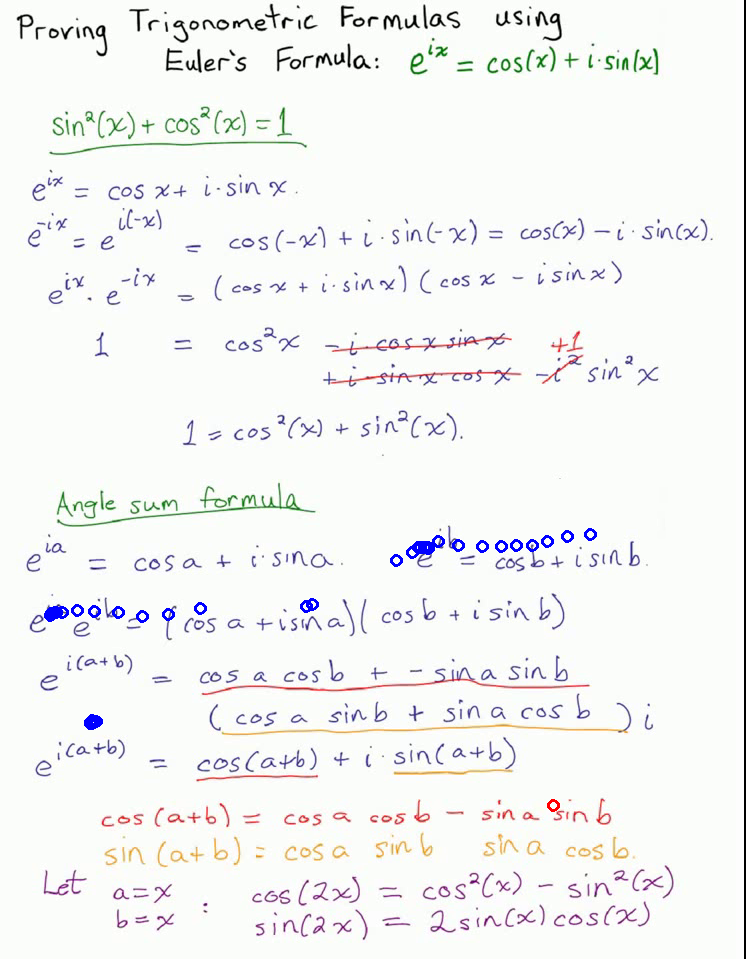 Proving Trigonometric Formulas using
Euler's Formula: e^{ix} = cos(x) + i·sin(x)
sin²(x) + cos²(x) = 1
e^{ix} = cos x + i·sin x.
e^{-ix} = e^{i(-x)} = cos(-x) + i·sin(-x) = cos(x) - i·sin(x).
e^{ix}·e^{-ix} = (cos x + i·sin x)(cos x - i sin x)
1 = cos²x - i·cos x sin x +1
+ i·sin x cos x - i² sin²x
1 = cos²(x) + sin²(x).
Angle sum formula
e^{ia} = cos a + i·sin a. e^{ib} = cos b + i sin b.
e^{ia} e^{ib} = (cos a + i sin a)(cos b + i sin b)
e^{i(a+b)} = cos a cos b + - sin a sin b
(cos a sin b + sin a cos b) i
e^{i(a+b)} = cos(a+b) + i·sin(a+b)
cos(a+b) = cos a cos b - sin a sin b
sin(a+b) = cos a sin b sin a cos b.
Let a = x : cos(2x) = cos²(x) - sin²(x)
b = x sin(2x) = 2 sin(x) cos(x)